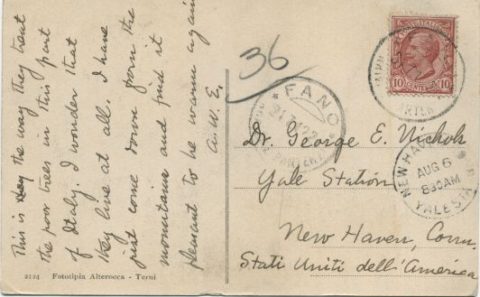 This is the way they treat
the poor trees in this part
of Italy. I wonder that
they live at all. I have
just come down from the
mountains and find it
pleasant to be warm again
A.W.E.
36
POSTE ITALIANE
10 CENTESIMI 10
FANO
NEW HAVEN
AUG 6
830AM
YALE STA
Dr. George E. Nichols
Yale Station
New Haven, Conn.
Stati Uniti dell'América
Fototipia Alterocca - Terni